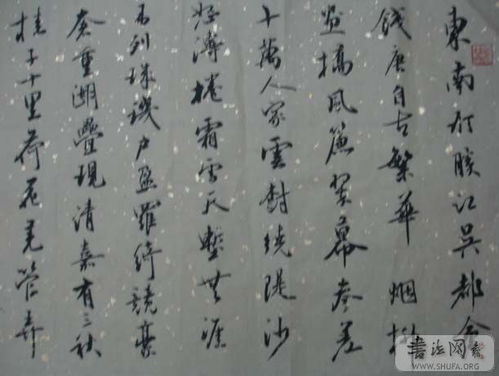 東南形勝江吳都會
錢唐自古繁華烟柳
畫橋風簾翠幕參差
十萬人家雲樹繞隄沙
怒濤捲霜雪天塹無涯
市列珠璣戶盈羅綺競豪
奢重湖疊現清嘉有三秋
桂子十里荷花羌管弄
書法网
WWW.SHUFA.ORG